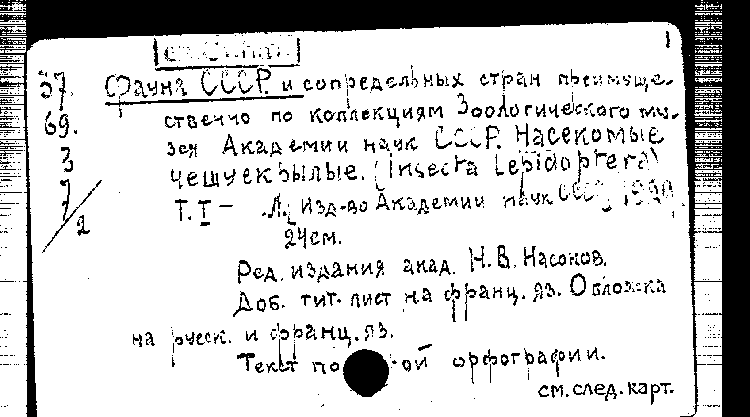 1
57. Фауна СССР и сопредельных стран преимуще-
69. ственно по коллекциям Зоологического му-
3 зея Академии наук СССР. Насекомые
7/2 чешуекрылые. (Insecta Lepidoptera)
Т. I — Л., Изд-во Академии наук СССР,
24см.
Ред. издания акад. Н. В. Насонов.
Доб. тит. лист на франц. яз. Обложка
на русск. и франц. яз.
Текст по орфографии.
см. след. карт.